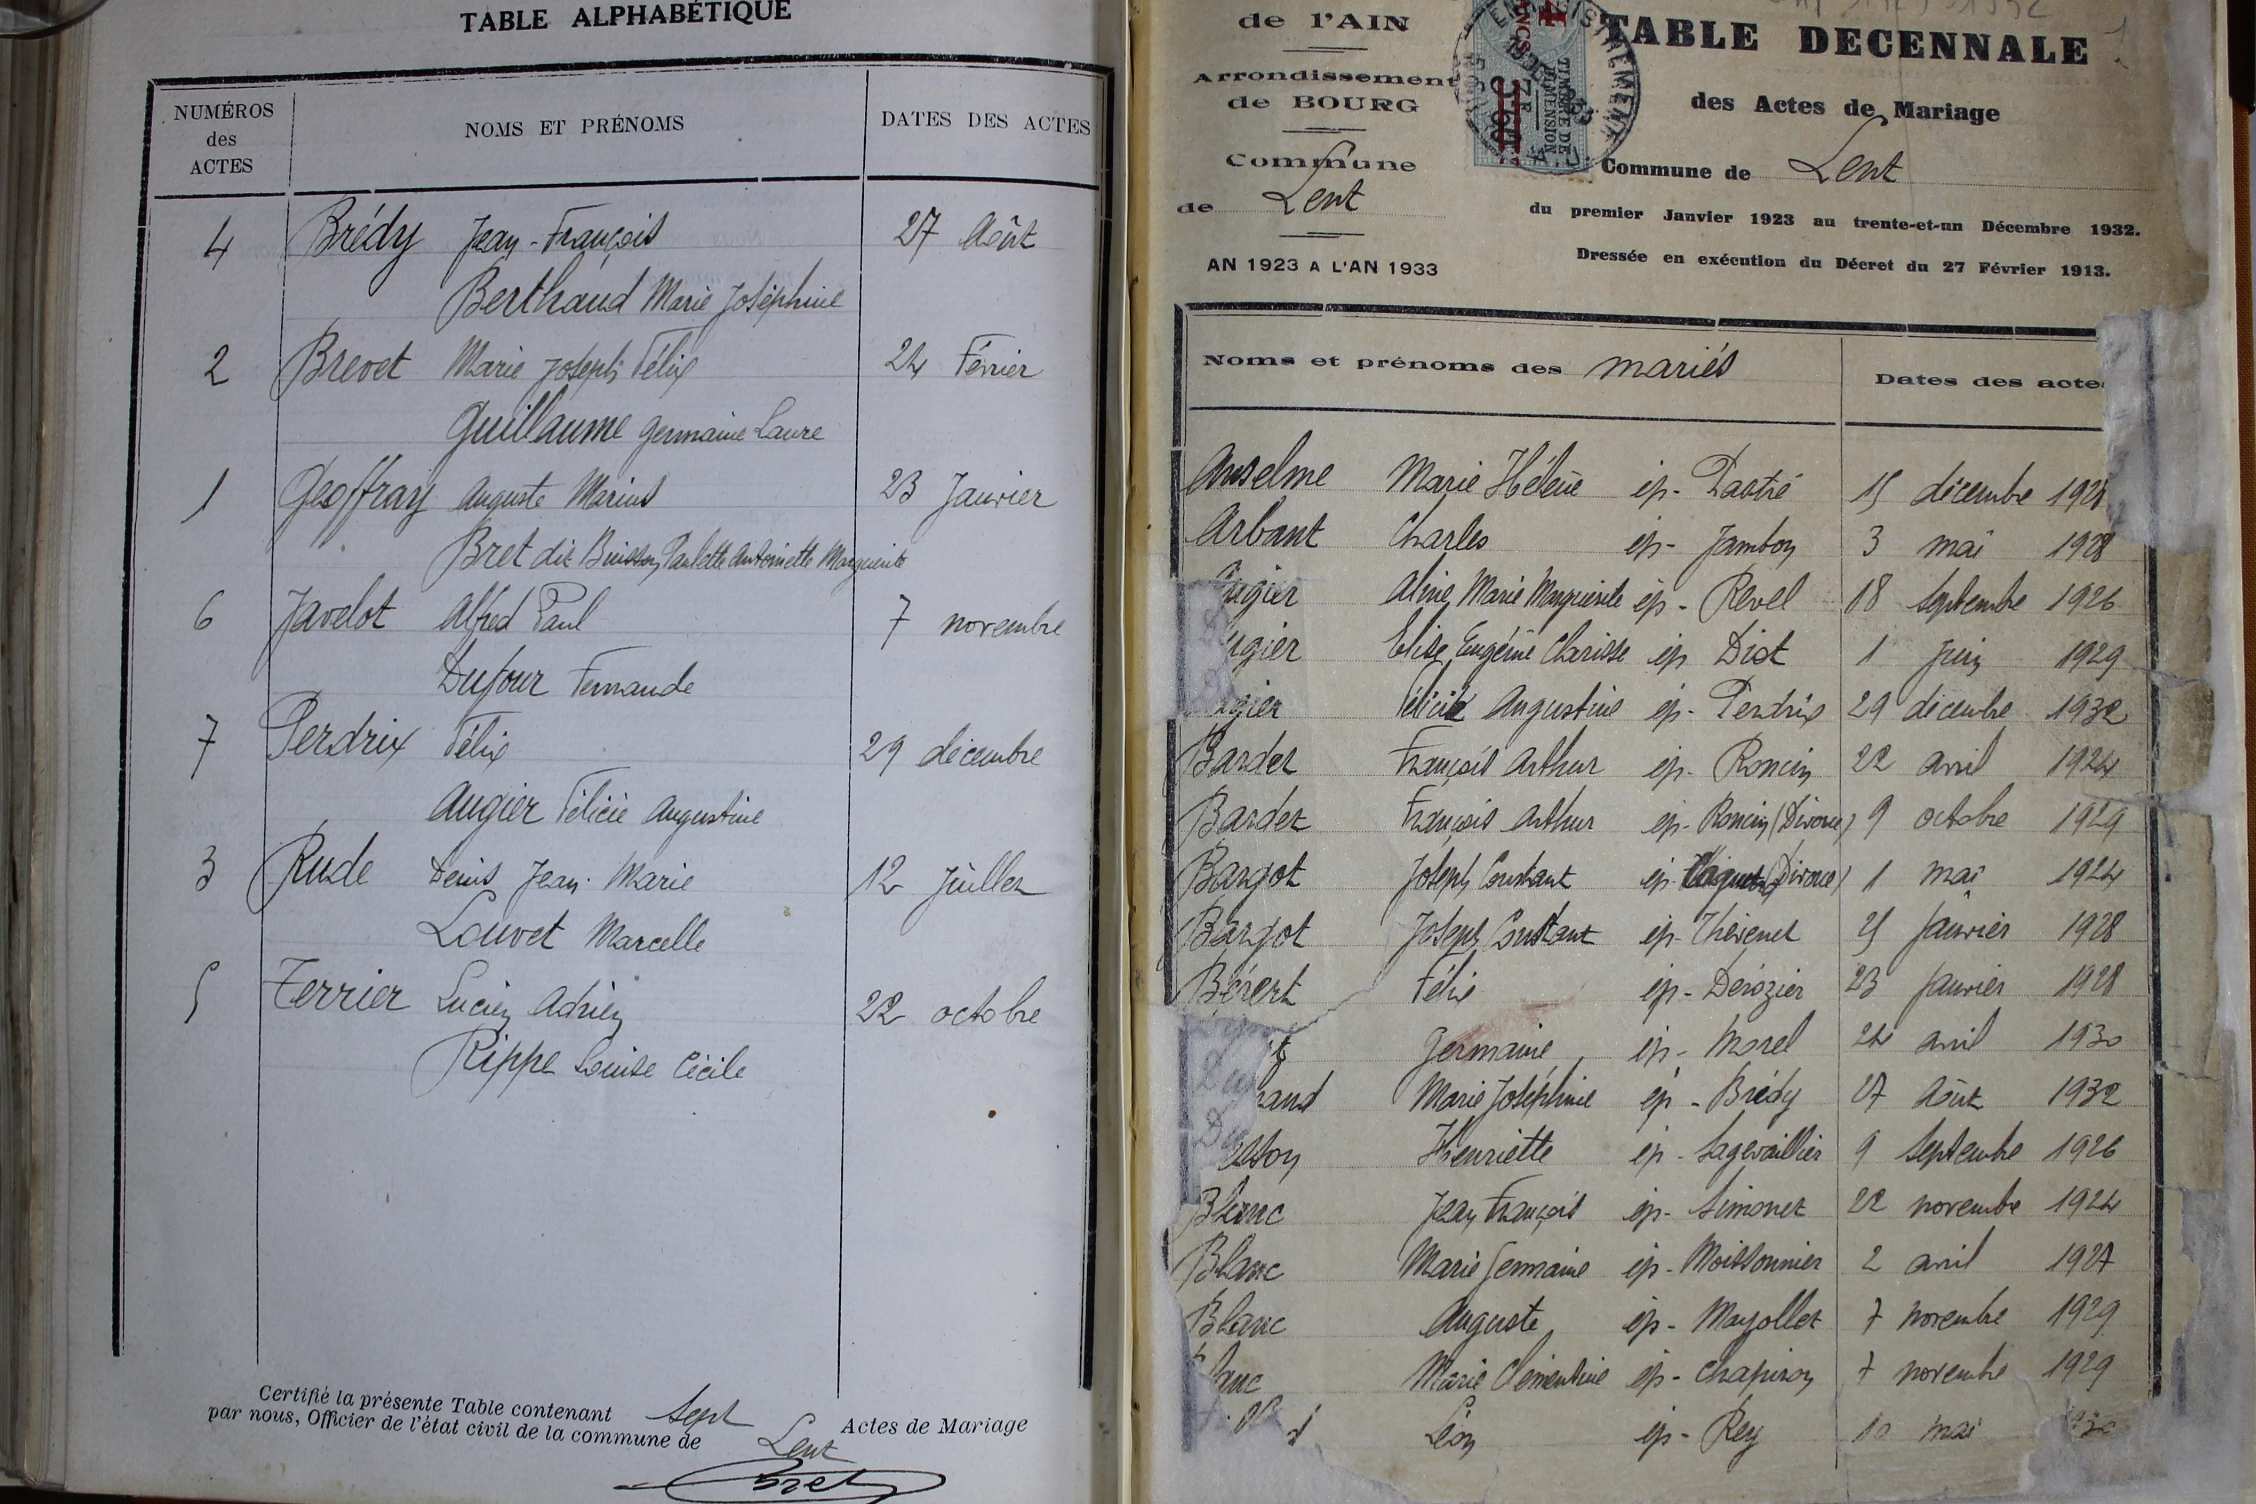 TABLE ALPHABÉTIQUE
NUMÉROS
des
ACTES
NOMS ET PRÉNOMS
DATES DES ACTES
4 Brédy Jean-François 27 Août
Berthaud Marie Joséphine
2 Brevet Marie Joseph Félix 24 Février
Guillaume Germaine Laure
1 Geoffray Auguste Marius 23 Janvier
Bret dit Buisson Paulette Antoinette Marguerite
6 Javelot Alfred Paul 7 novembre
Dufour Fernande
7 Perdrix Félix 29 décembre
Augier Félicie Augustine
3 Rude Denis Jean-Marie 12 Juillet
Louvet Marcelle
5 Terrier Lucien Adrien 22 octobre
Rippe Louise Cécile
Certifié la présente Table contenant sept Actes de Mariage
par nous, Officier de l'état civil de la commune de Lent
Bret
de l'AIN
Arrondissement
de BOURG
Commune
de Lent
AN 1923 A L'AN 1933
TABLE DECENNALE
des Actes de Mariage
Commune de Lent
du premier Janvier 1923 au trente-et-un Décembre 1932.
Dressée en exécution du Décret du 27 Février 1913.
TIMBRE DE
DIMENSION
Noms et prénoms des mariés
Dates des actes
Anselme Marie Hélène ép- 15 décembre
Arbant Charles ép- Jambon 3 mai 1928
ugier Aline Marie Marguerite ép- Revel 18 septembre 1926
ugier Elise Eugénie Clarisse ép Diot 1 Juin 1929
gier Félicie Augustine ép- Perdrix 29 décembre 1932
Bardet François Arthur ép- Roncin 22 avril 1924
Bardet François Arthur ép- Roncin (Divorce) 9 octobre 1929
Bargot Joseph Constant ép- (Divorce) 1 mai 1924
Bargot Joseph Constant ép- Thévenet 25 Janvier 1928
Félix ép- Dérozier 23 Janvier 1928
Germaine ép- Morel 24 avril 1930
aud Marie Joséphine ép- Brédy 27 Août 1932
sson Henriette ép- Sagevaillier 9 septembre 1926
Blanc Jean François ép- Simonet 22 novembre 1924
Blanc Marie Germaine ép- Moissonnier 2 avril 1927
Blanc Auguste ép- Mayollet 7 novembre 1929
lanc Marie Clémentine ép- Chapiron 7 novembre 1929
Léon ép- Rey 10 mai